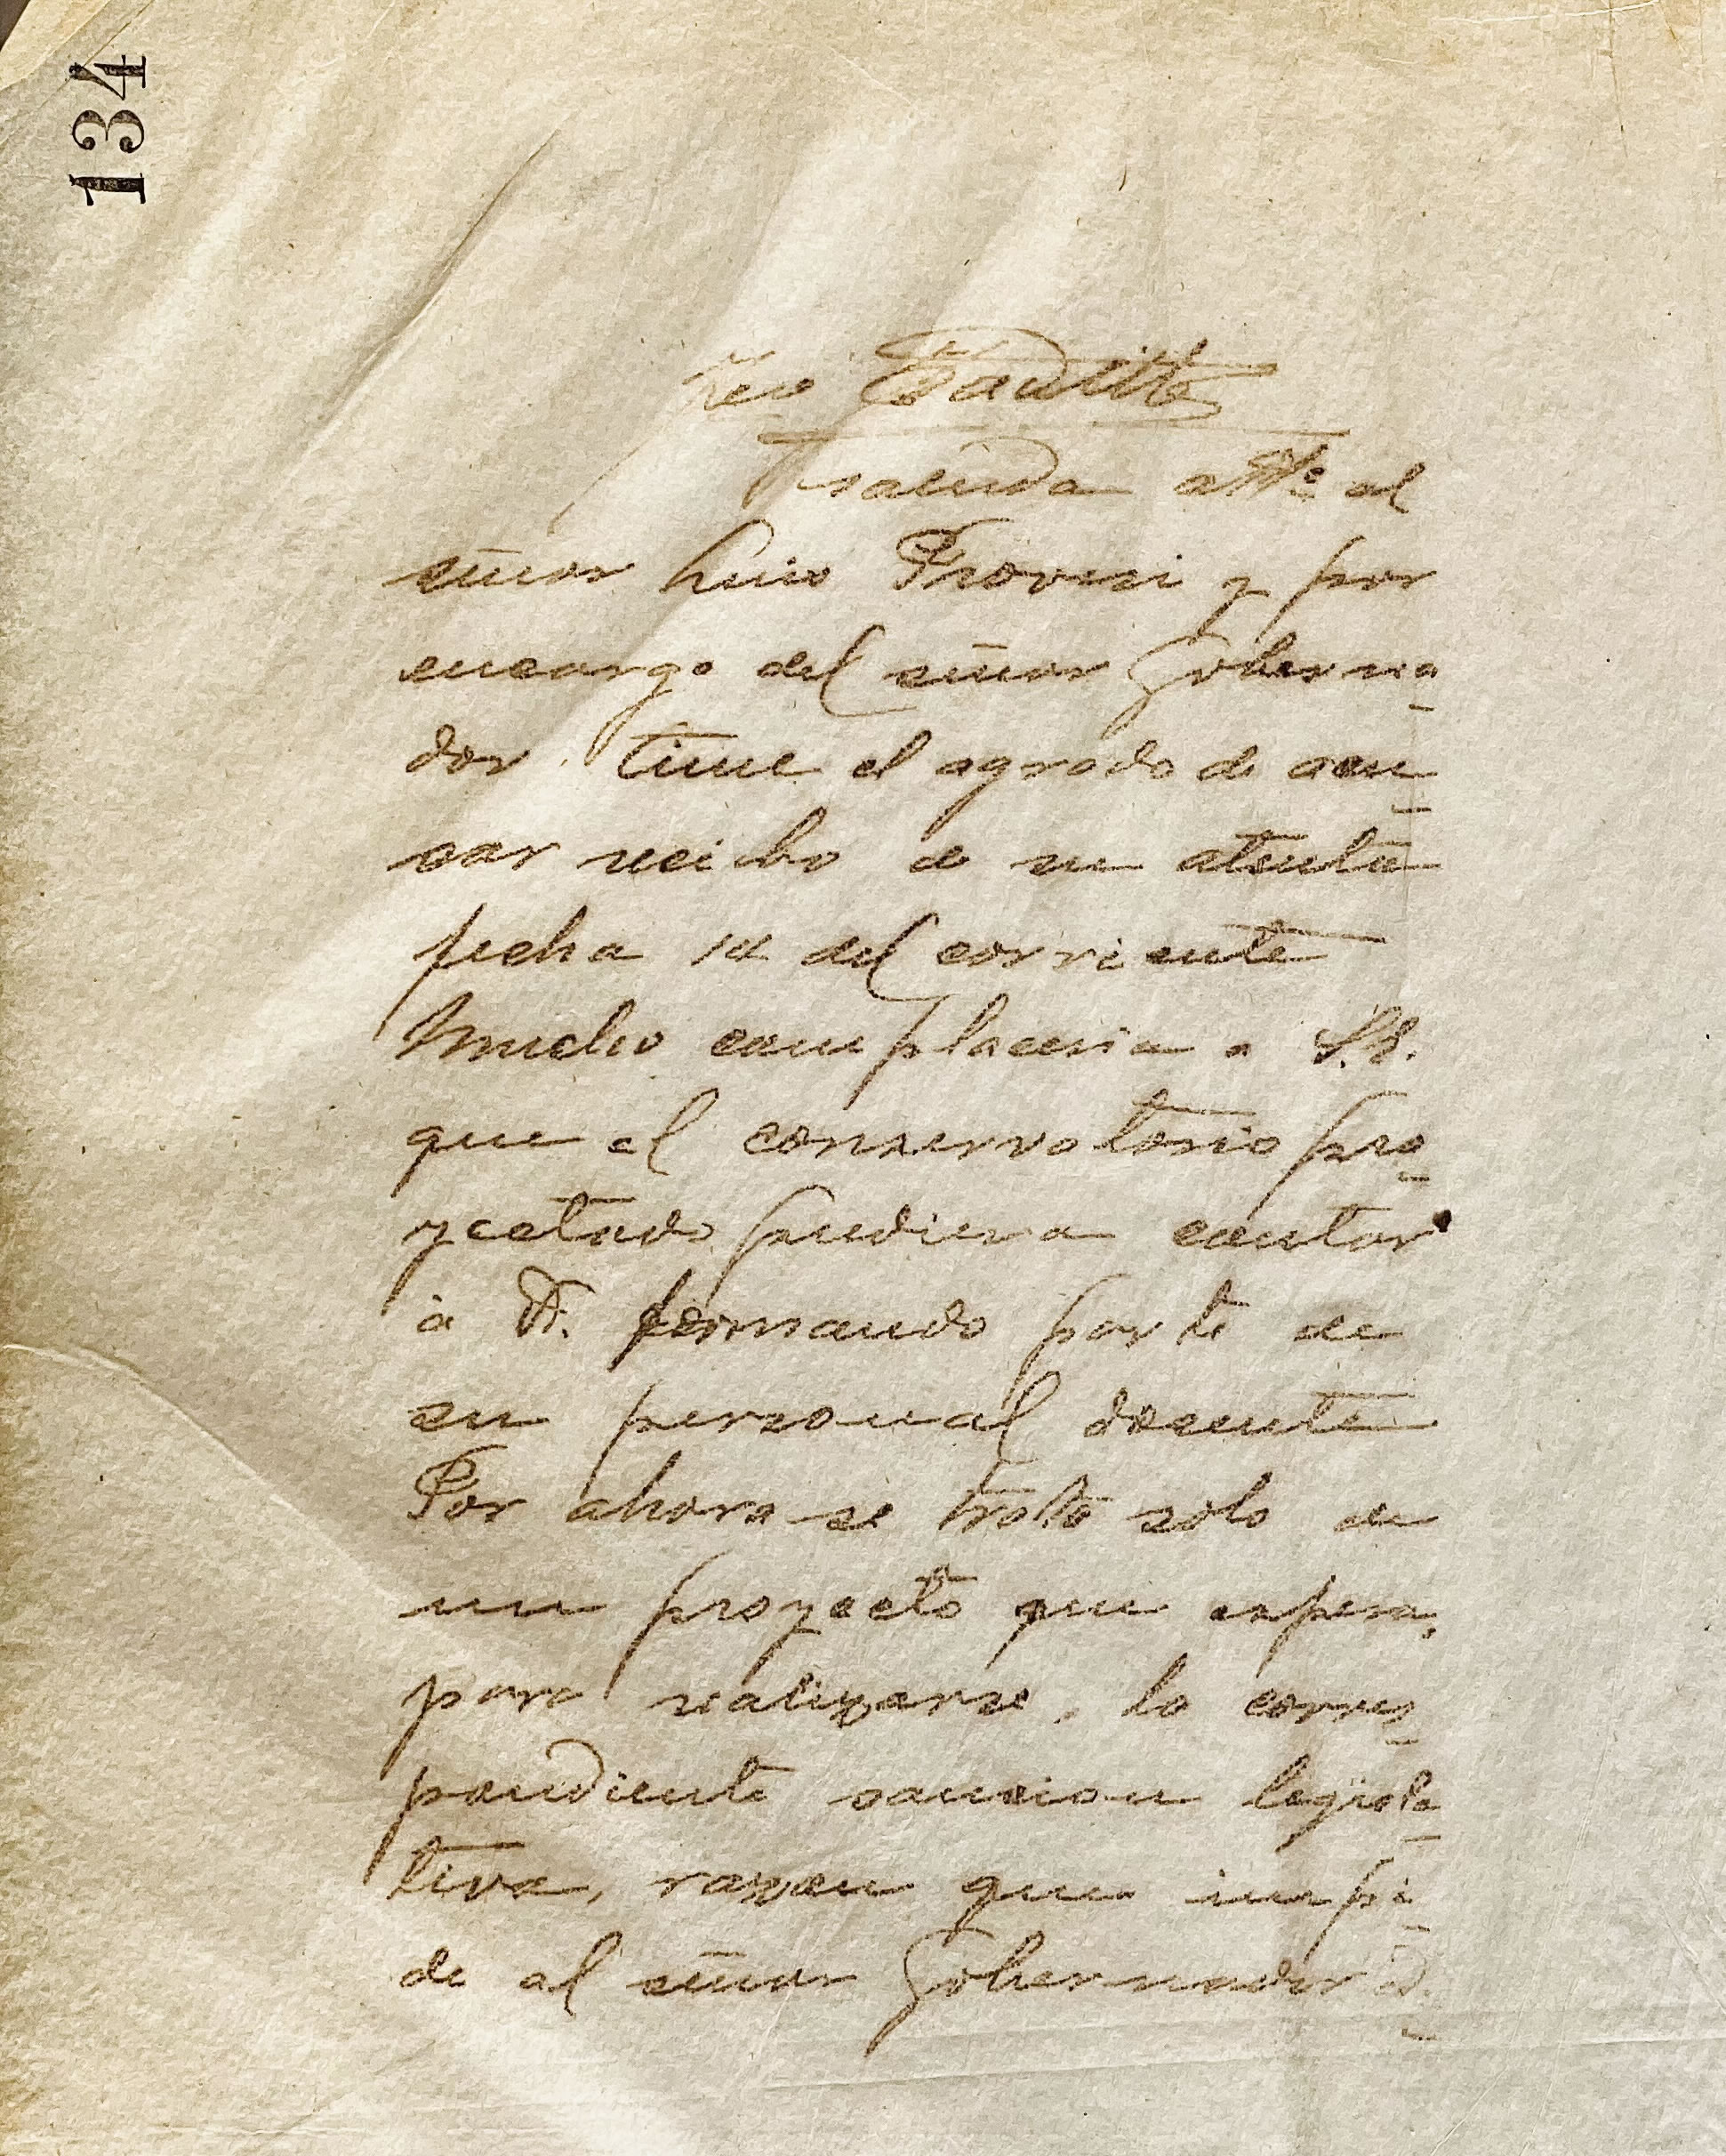 134
saluda atto al
señor Livio Provesi y por
encargo del señor Goberna
dor tiene el agrado de acu
sar recibo de su atenta
fecha 14 del corriente
Mucho complaceria a S.S.
que el conservatorio pro
yectado pudiera contar
á Vd. formando parte de
su personal docente
Por ahora se trata solo de
un proyecto que espera,
para realizarse, la corres
pondiente sancion legisla
tiva, razon que impi
de al señor Gobernador